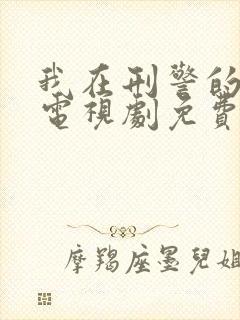 我在刑警的
電視劇免費
摩羯座墨兒姐